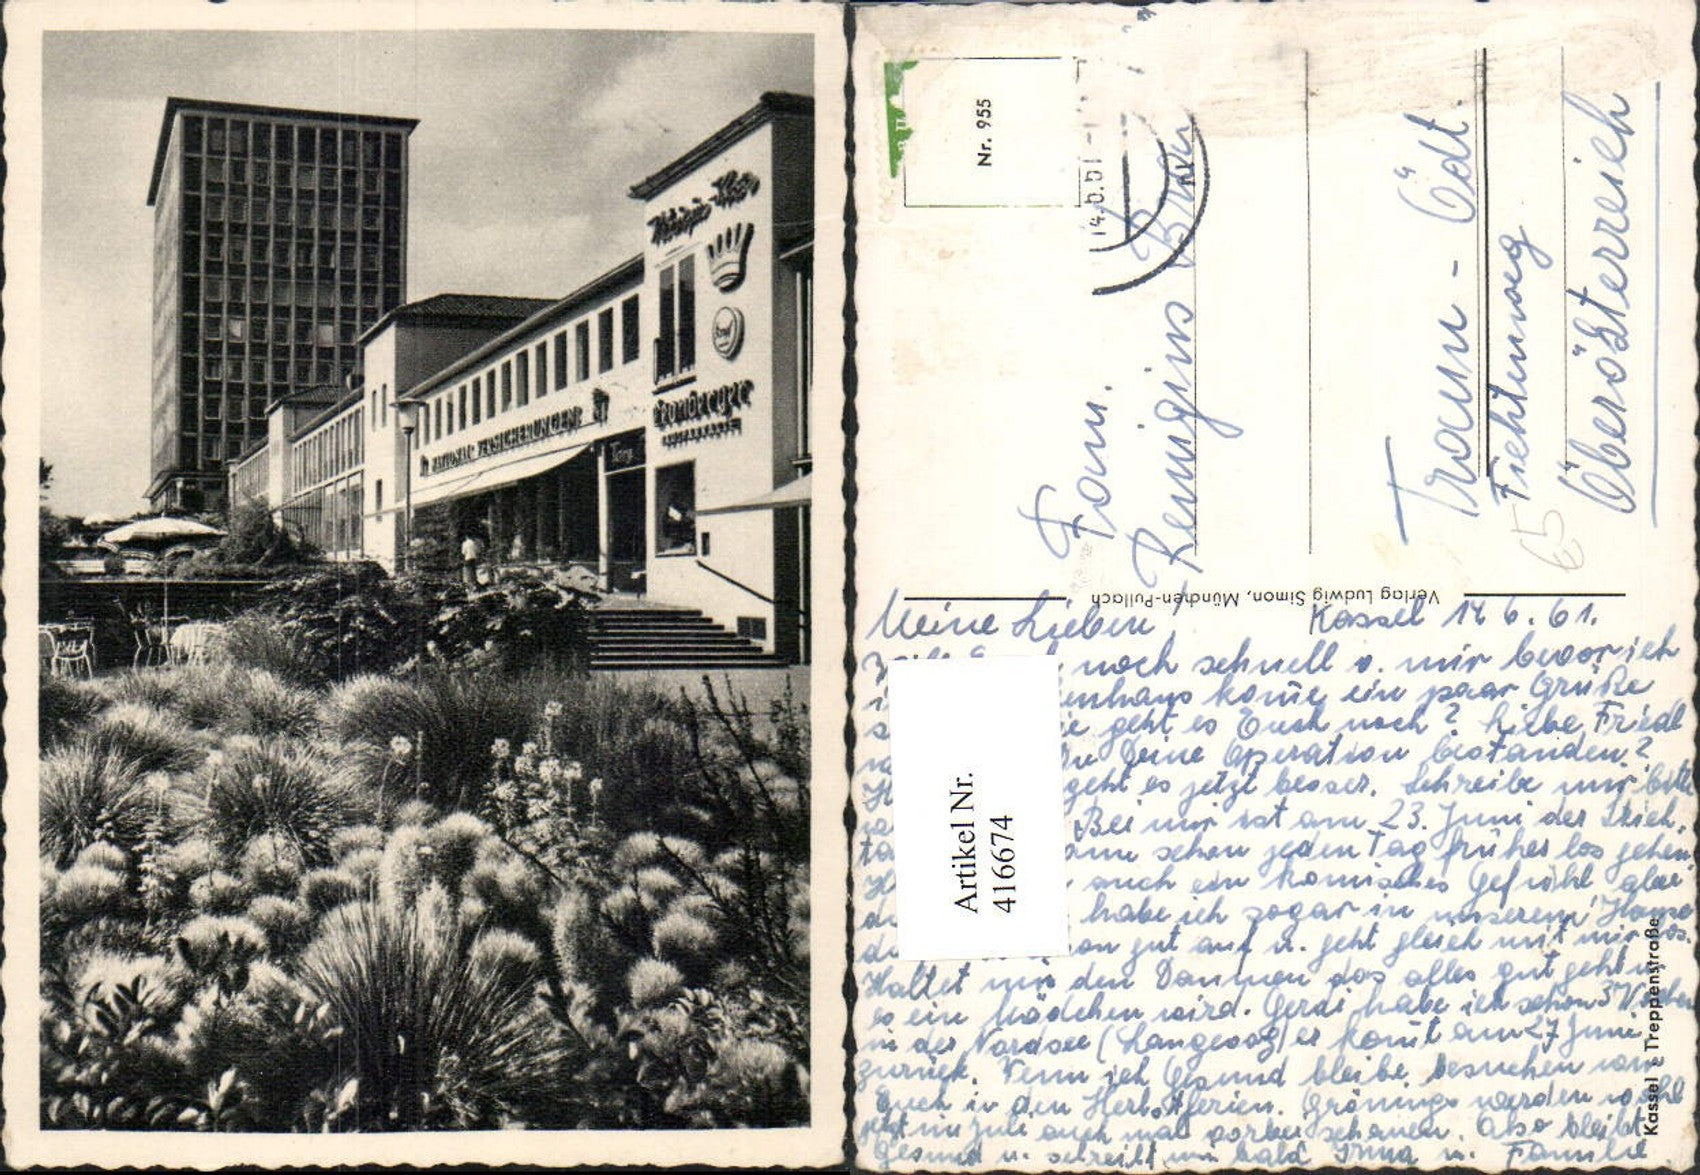 NATIONALE VERSICHERUNGEN
Nr. 955
14.6.61
Fam.
Remigius
Traun - Ödt.
Oberösterreich
65
Verlag Ludwig Simon, München-Pullach
Kassel, Treppenstraße
Artikel Nr.
416674
Meine Lieben Kassel 14 6. 61.
noch schnell v. mir bevor ich
komme ein paar Grüße
geht es Euch noch? Liebe Friedl
Deine Operation bestanden?
geht es jetzt besser. Schreibe mir bitte
Bei mir ist am 23. Juni der Stich.
schon jeden Tag früher los gehen.
auch ein komisches Gefühl aber
habe ich sogar in unserem
gut auf u. geht gleich mit mir los.
Haltet mir den Daumen das alles gut geht u.
es ein Mädchen wird. Gerdi habe ich schon 3 Wochen
in der Nordsee (Langeoog) er komt am 27 Juni
zurück. Wenn ich Gesund bleibe besuchen wir
Euch in den Herbstferien. werden wohl
jetzt im Juli auch mal vorbei schauen. Also bleibt
Gesund u. schreibt mir bald Irma u. Familie